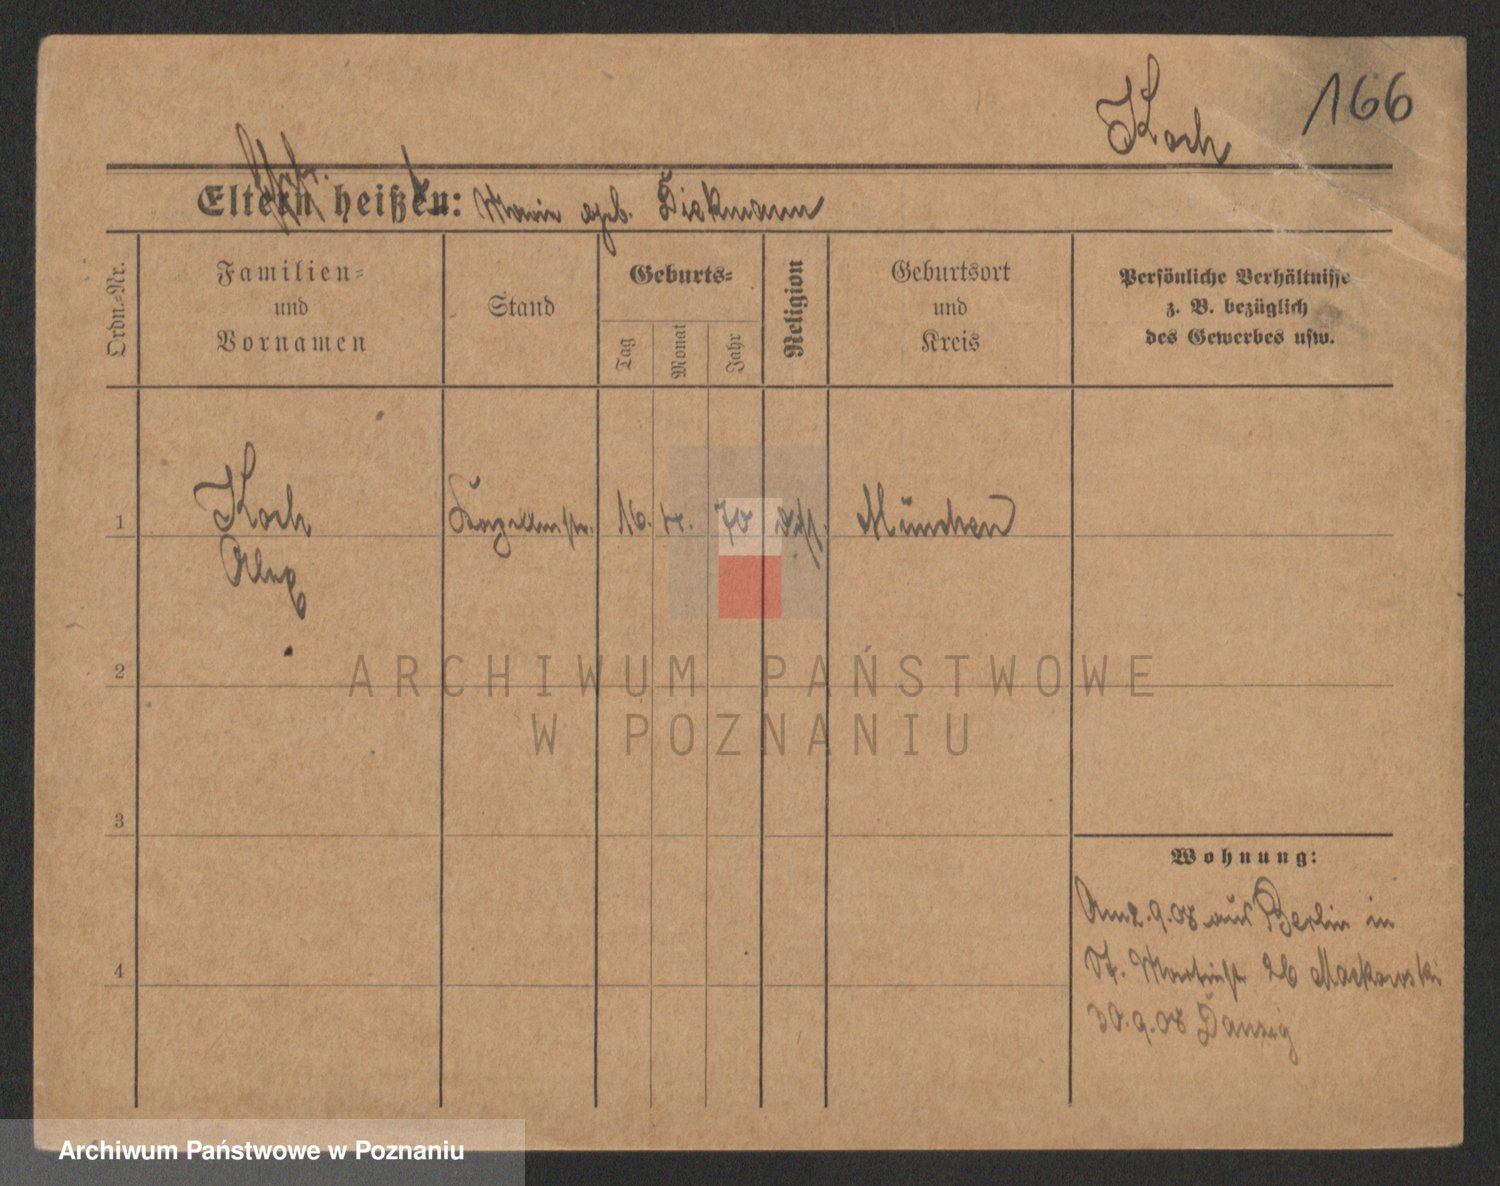 166
Koch
Eltern heißen: Marie geb. Dickmann
Ordn.-Nr.
Familien-
und
Vornamen
Stand
Geburts-
Tag
Monat
Jahr
Religion
Geburtsort
und
Kreis
Persönliche Verhältnisse
z. B. bezüglich
des Gewerbes usw.
1
Koch
16. 4. 70
München
Alex
2
ARCHIWUM PAŃSTWOWE
W POZNANIU
3
Wohnung:
Am 2.9.08 aus Berlin in
4
St. Martinstr 26 Mackowski
30.9.08 Danzig
Archiwum Państwowe w Poznaniu